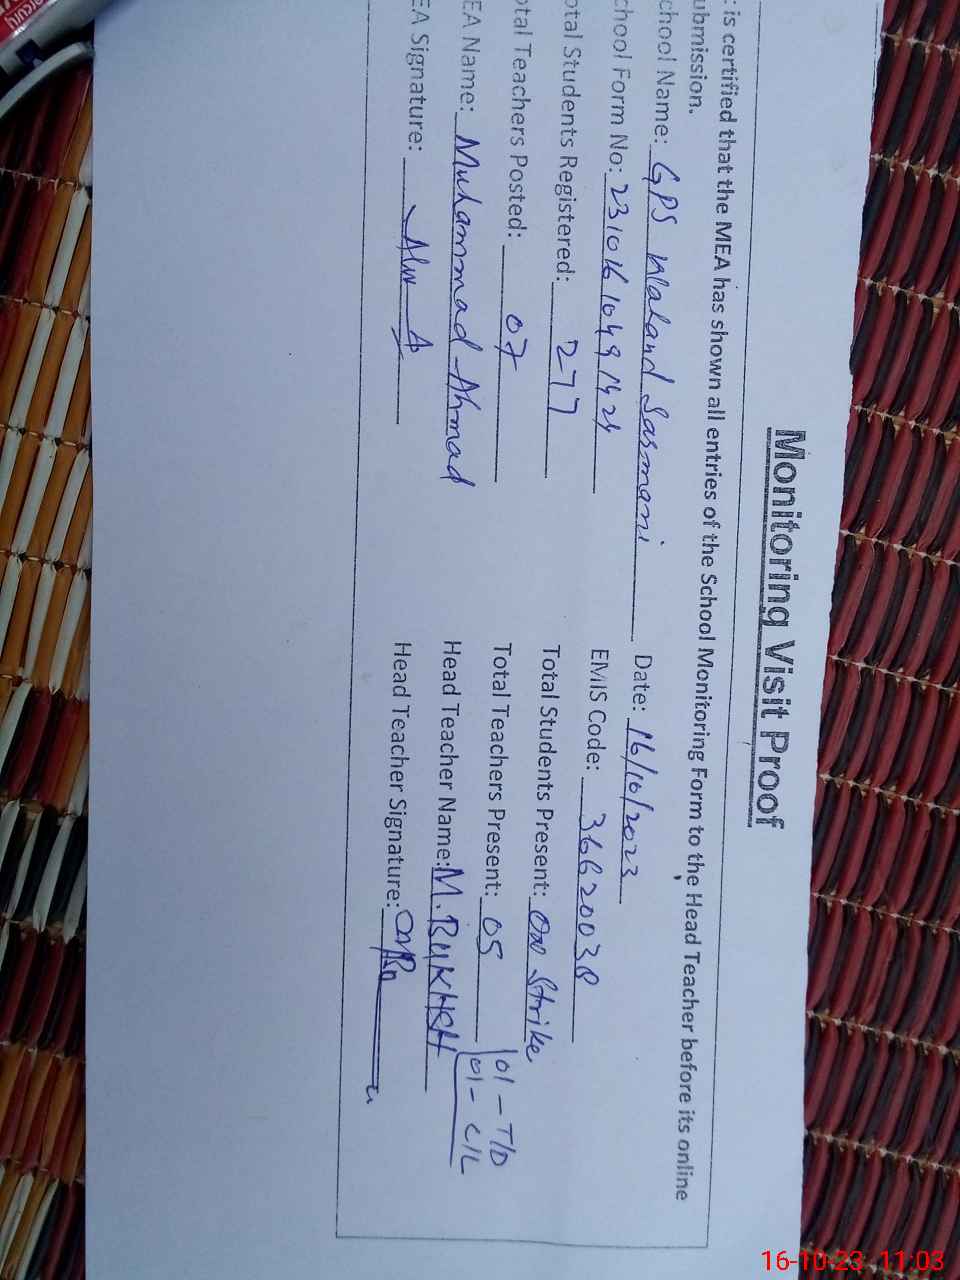 Monitoring Visit Proof
is certified that the MEA has shown all entries of the School Monitoring Form to the Head Teacher before its online
ubmission.
chool Name: GPS Wahand Sasmani Date: 16/10/2023
chool Form No: EMIS Code: 36620038
otal Students Registered: 277 Total Students Present: On Strike
otal Teachers Posted: 07 Total Teachers Present: 05 01 - T/D
01 - C/L
EA Name: Muhammad Ahmad Head Teacher Name: M. BUKHSH
EA Signature: Head Teacher Signature:
16-10-23 11:03